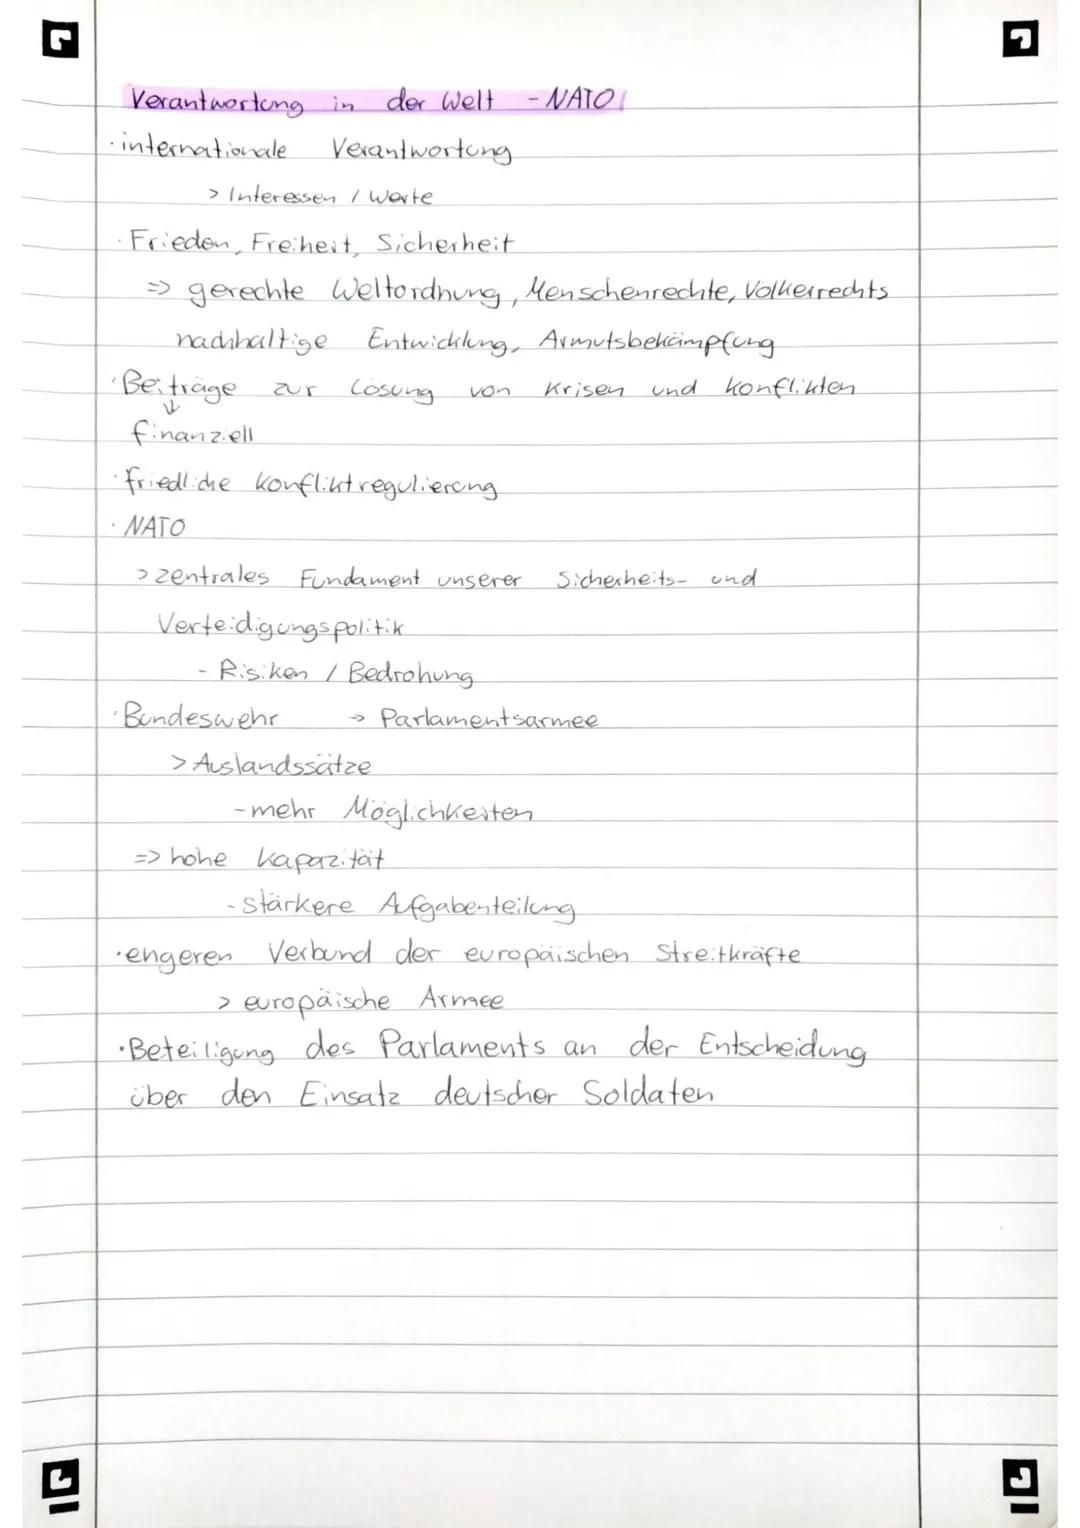 Verantwortung in der Welt - NATO
· internationale Verantwortung
> Interessen / Werte
· Frieden, Freiheit, Sicherheit
=> gerechte Weltordnung, Menschenrechte, Völkerrechts
nachhaltige Entwicklung, Armutsbekämpfung
· Beiträge zur Lösung von Krisen und Konflikten
↓
finanziell
· friedliche Konfliktregulierung
· NATO
> zentrales Fundament unserer Sicherheits- und
Verteidigungspolitik
- Risiken / Bedrohung
· Bundeswehr → Parlamentsarmee
> Auslandssätze
- mehr Möglichkeiten
=> hohe Kapazität
- stärkere Aufgabenteilung
· engeren Verbund der europäischen Streitkräfte
> europäische Armee
· Beteiligung des Parlaments an der Entscheidung
über den Einsatz deutscher Soldaten